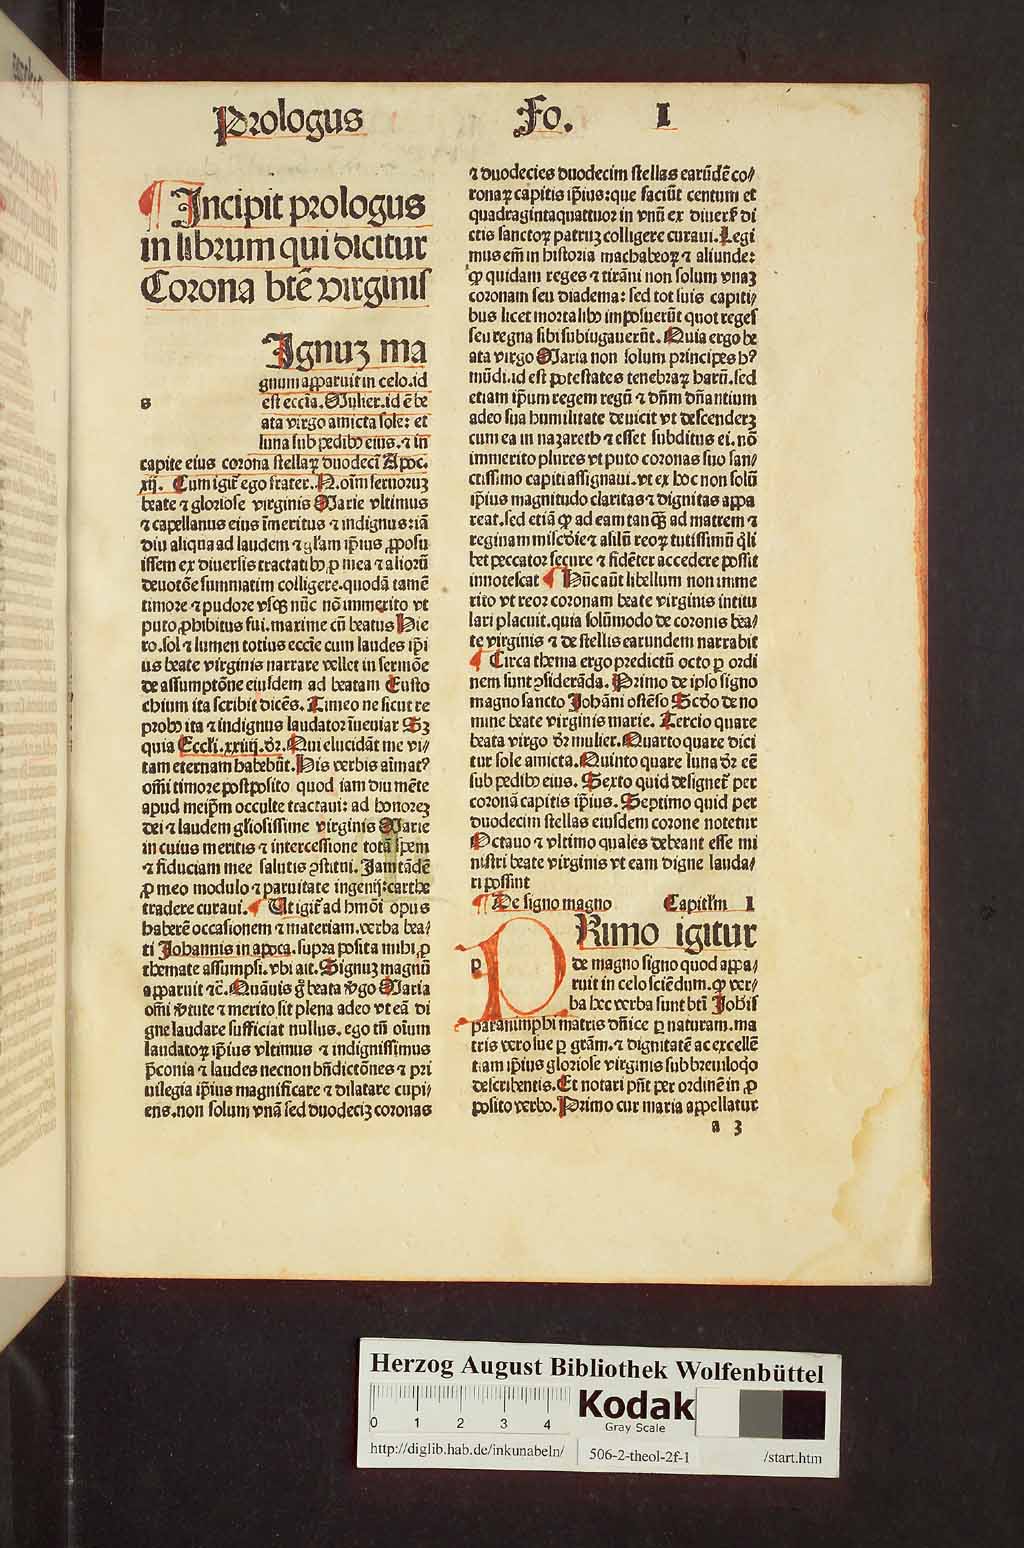 Prologus Fo. I
¶ Incipit prologus
in librum qui dicitur
Corona btē virginis
s
Ignuꝫ ma
gnum apparuit in celo.id
est eccīa.Mulier.id ē be
ata virgo amicta sole: et
luna sub pedibꝰ eius.⁊ in
capite eius corona stellaꝝ duodecī Apoc.
xij. Cum igit̃ ego frater.N.oīm seruoruꝫ
beate ⁊ gloriose virginis Marie vltimus
⁊ capellanus eius īmeritus ⁊ indignus:iā
diu aliqua ad laudem ⁊ gl'am ip̄ius ꝓposu
issem ex diuersis tractatibꝰ ꝑ mea ⁊ alioꝝ
deuotōe summatim colligere.quodā tamē
timore ⁊ pudore vsqꝫ nūc nō immerito vt
puto ꝓhibitus fui.maxime cū beatus Hie
ro.sol ⁊ lumen totius eccīe cum laudes ip̄i
us beate virginis narrare vellet in sermōe
de assumptōne eiusdem ad beatam Eusto
chium ita scribit dicēs. Timeo ne sicut re
probꝰ ita ⁊ indignus laudator īueniar Sꝫ
quia Eccl'i.xxiiij.dr̄. Qui elucidāt me vi⸗
tam eternam habebūt.His verbis aīmatꝰ
om̄i timore postposito quod iam diu mēte
apud meip̄m occulte tractaui: ad honoreꝫ
dei ⁊ laudem gl'iosissime virginis Marie
in cuius meritis ⁊ intercessione totā spem
⁊ fiduciam mee salutis ꝯstitui. Jam tādē
ꝓ meo modulo ⁊ paruitate ingenij:carthe
tradere curaui. ¶ Ut igit̃ ad hmōi opus
haberē occasionem ⁊ materiam.verba bea⸗
ti Johannis in apoca.supra posita mihi ꝓ
themate assumpsi.vbi ait. Signuꝫ magnū
apparuit ⁊c̄. Quāuis g̊ beata v̄go Maria
om̄i v̄tute ⁊ merito sit plena adeo vt eā di
gne laudare sufficiat nullus. ego tn̄ oīum
laudatoꝝ ip̄ius vltimus ⁊ indignissimus
p̄conia ⁊ laudes necnon bn̄dictōnes ⁊ pri
uilegia ip̄ius magnificare ⁊ dilatare cupi⸗
ens.non solum vnā sed duodeciꝫ coronas
⁊ duodecies duodecim stellas earūdē co⸗
ronaꝝ capitis ip̄ius:que faciūt centum et
quadragintaquattuor in vnū ex diuers̄ di
ctis sanctoꝝ patruꝫ colligere curaui.Legi
mus em̄ in historia machabeoꝝ ⁊ aliunde:
ꝙ quidam reges ⁊ tirāni non solum vnaꝫ
coronam seu diadema: sed tot suis capiti⸗
bus licet mortalibꝰ imposuerūt quot reges
seu regna sibi subiugauerūt. Quia ergo be
ata virgo Maria non solum principes hꝰ
mūdi.id est potestates tenebraꝝ harū.sed
etiam ip̄um regem regū ⁊ dn̄m dn̄antium
adeo sua humilitate deuicit vt descenderꝫ
cum ea in nazareth ⁊ esset subditus ei. nō
immerito plures vt puto coronas suo san⸗
ctissimo capiti assignaui.vt ex hoc non solū
ip̄ius magnitudo claritas ⁊ dignitas appa
reat.sed etiā ꝙ ad eam tanqꝫ̄ ad matrem ⁊
reginam mīscd'ie ⁊ asilū reoꝝ tutissimū q̄li
bet peccator secure ⁊ fidēter accedere possit
innotescat ¶ Hūc aūt libellum non imme
rito vt reor coronam beate virginis intitu
lari placuit.quia solūmodo de coronis bea⸗
te virginis ⁊ de stellis earundem narrabit
¶ Circa thema ergo predictū octo ꝑ ordi
nem sunt ꝯsiderāda. Primo de ipso signo
magno sancto Johāni ostēso Scd̄o de no
mine beate virginis marie. Tercio quare
beata virgo dr̄ mulier. Quarto quare dici
tur sole amicta. Quinto quare luna dr̄ eē
sub pedibꝰ eius. Sexto quid designet̃ per
coronā capitis ip̄ius. Septimo quid per
duodecim stellas eiusdem corone notetur
Octauo ⁊ vltimo quales debeant esse mi
nistri beate virginis vt eam digne lauda⸗
ri possint
¶ De signo magno Capitl'm I
p
PRimo igitur
de magno signo quod appa⸗
ruit in celo sciēdum.ꝙ ver⸗
ba hec verba sunt btī Joh̄is
paranimphi matris dn̄ice ꝑ naturam.ma
tris vero sue ꝑ grām.⁊ dignitatē ac excellē
tiam ip̄ius gloriose virginis sub breuiloq̊o
describentis. Et notari pn̄t per ordinē in ꝓ
posito verbo. Primo cur maria appellatur
a 3
Herzog August Bibliothek Wolfenbüttel
0 1 2 3 4
Kodak
Gray Scale
http://diglib.hab.de/inkunabeln/ 506-2-theol-2f-1 /start.htm